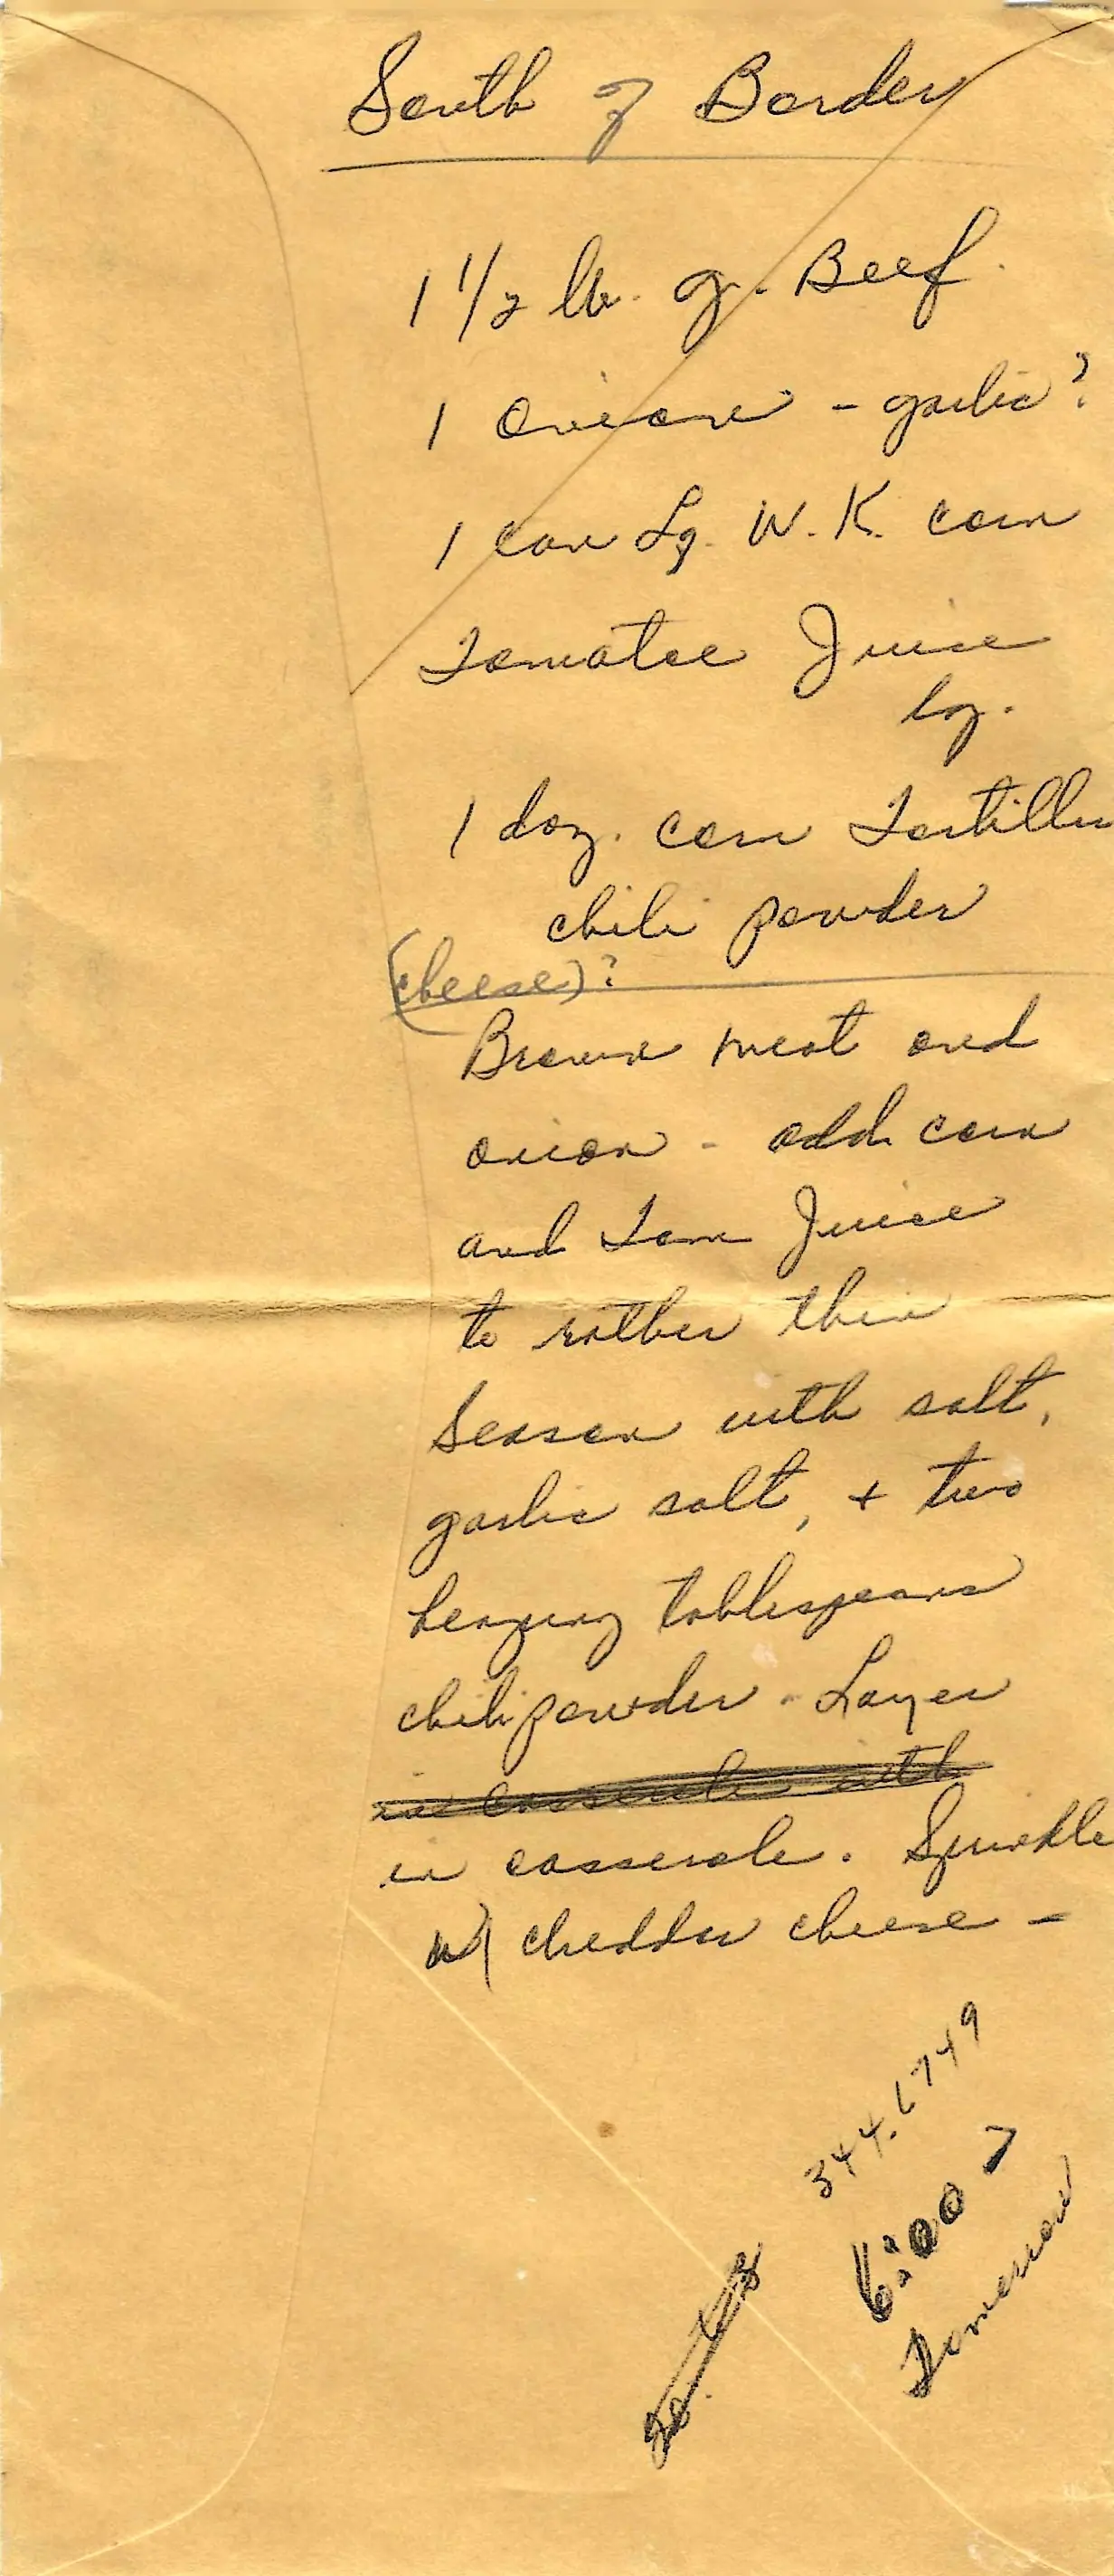 South of Border
1 1/2 lb. gr. Beef.
1 Onion - garlic?
1 can Lg. W. K. corn
Tomatoe Juice
lg.
1 doz. corn Tortillas
chili powder
(cheese)?
Brown meat and
onion - add corn
and Tom Juice
to rather thin
Season with salt,
garlic salt, + two
heaping tablespoons
chili powder - Layer
in casserole with
in casserole. Sprinkle
w/ cheddar cheese -
344.6749
6:00 >
Tomorrow